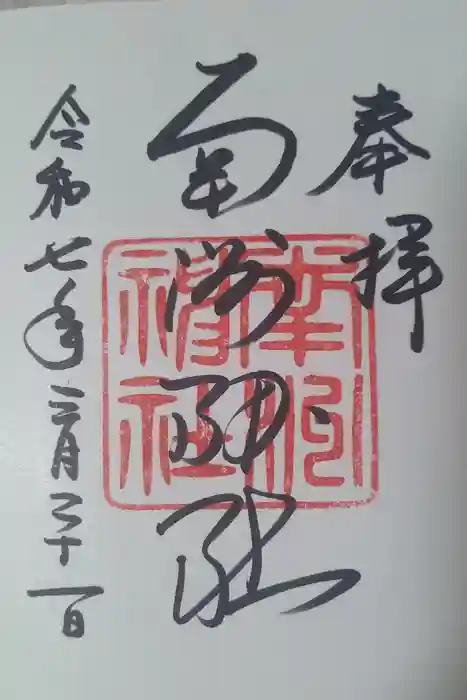 奉拝
南洲神社
令和七年三月三十一日
南洲
神社